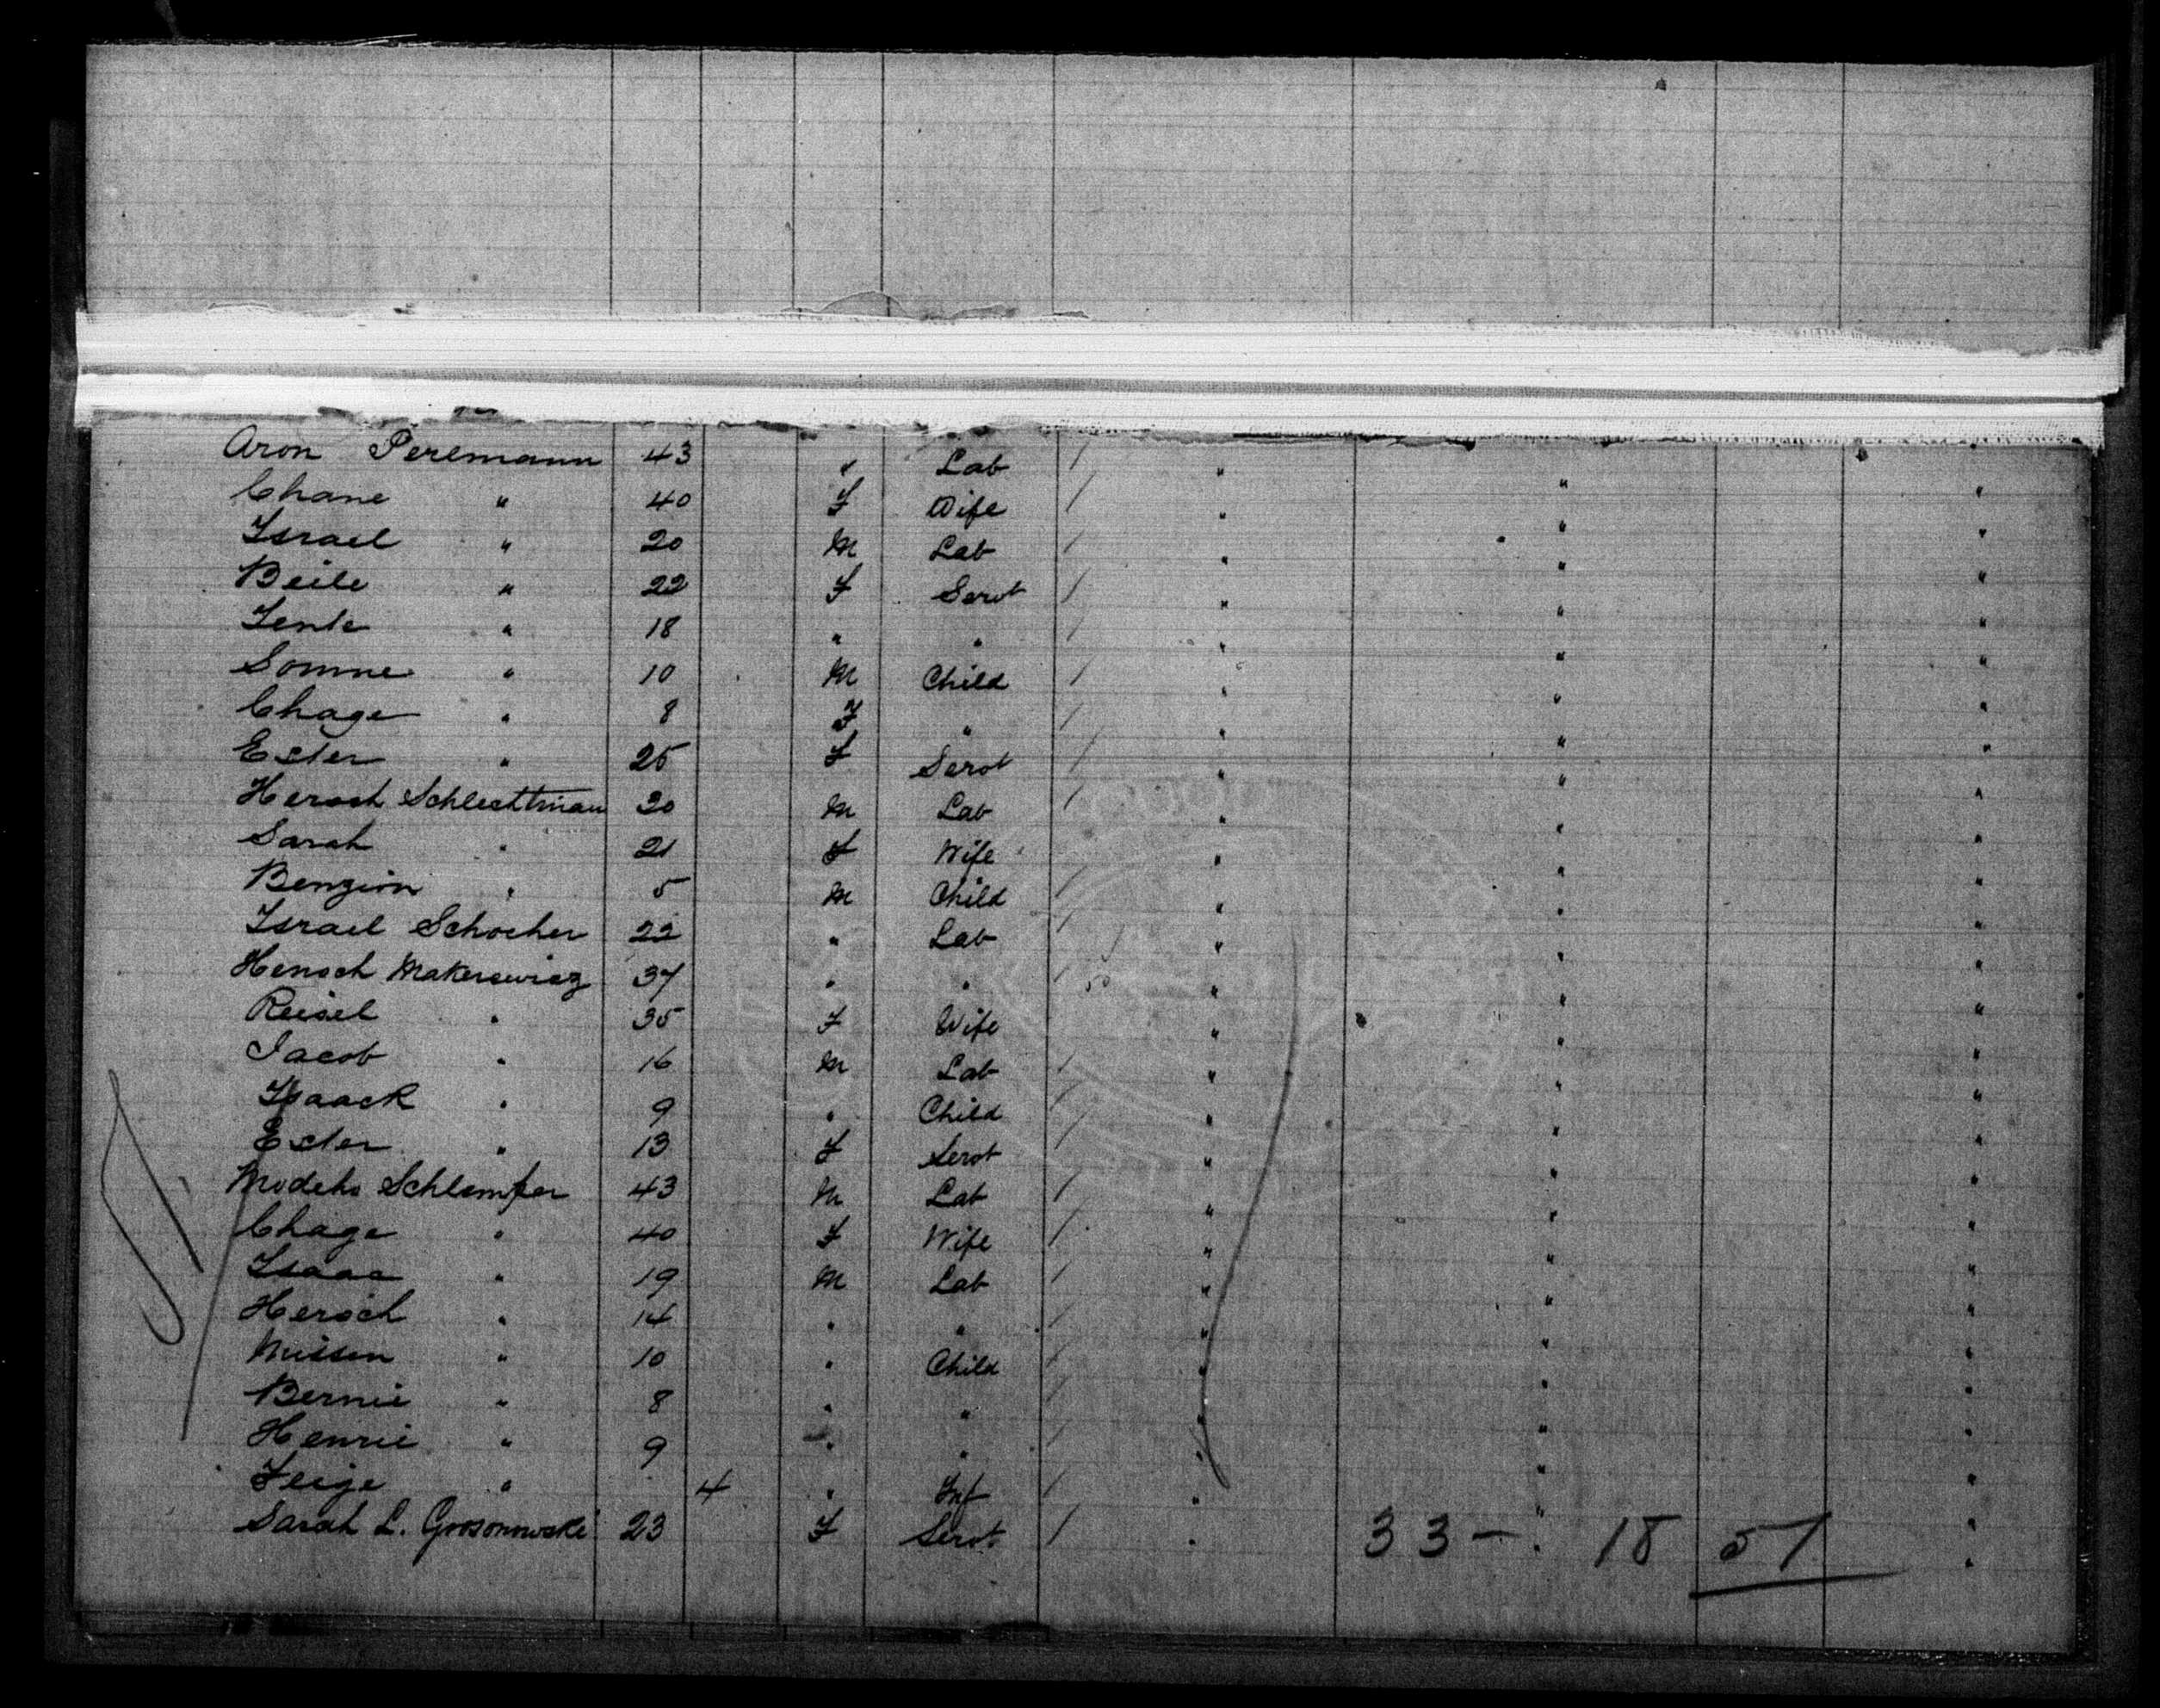 Aron Perlmann 43 " Lab / " " "
Chane " 40 F Wife / " " "
Israel " 20 M Lab / " " "
Beile " 22 F Servt / " " "
Zente " 18 " " / " " "
Somne " 10 M Child / " " "
Chage " 8 F " / " " "
Ester " 25 F Servt / " " "
Hersch Schlechtman 30 M Lab / " " "
Sarah " 21 F Wife " " "
Benzion " 5 M Child / " " "
Israel Schocher 22 " Lab / " " "
Henoch Makerewicz 37 " " / " " "
Reisel " 35 F Wife " " "
Jacob " 16 M Lab / " " "
Isaack " 9 " Child / " " "
Ester " 13 F Servt / " " "
Modeho Schlemfer 43 M Lab / " " "
Chage " 40 F Wife / " " "
Isaac " 19 M Lab / " " "
Hersch " 14 " " / " " "
Nissen " 10 " Child / " " "
Bernie " 8 " " / " " "
Henrie " 9 " " / " " "
Feige " 4 " Inf / " " "
Sarah L. 23 F Servt / " " "
33 – 18 51